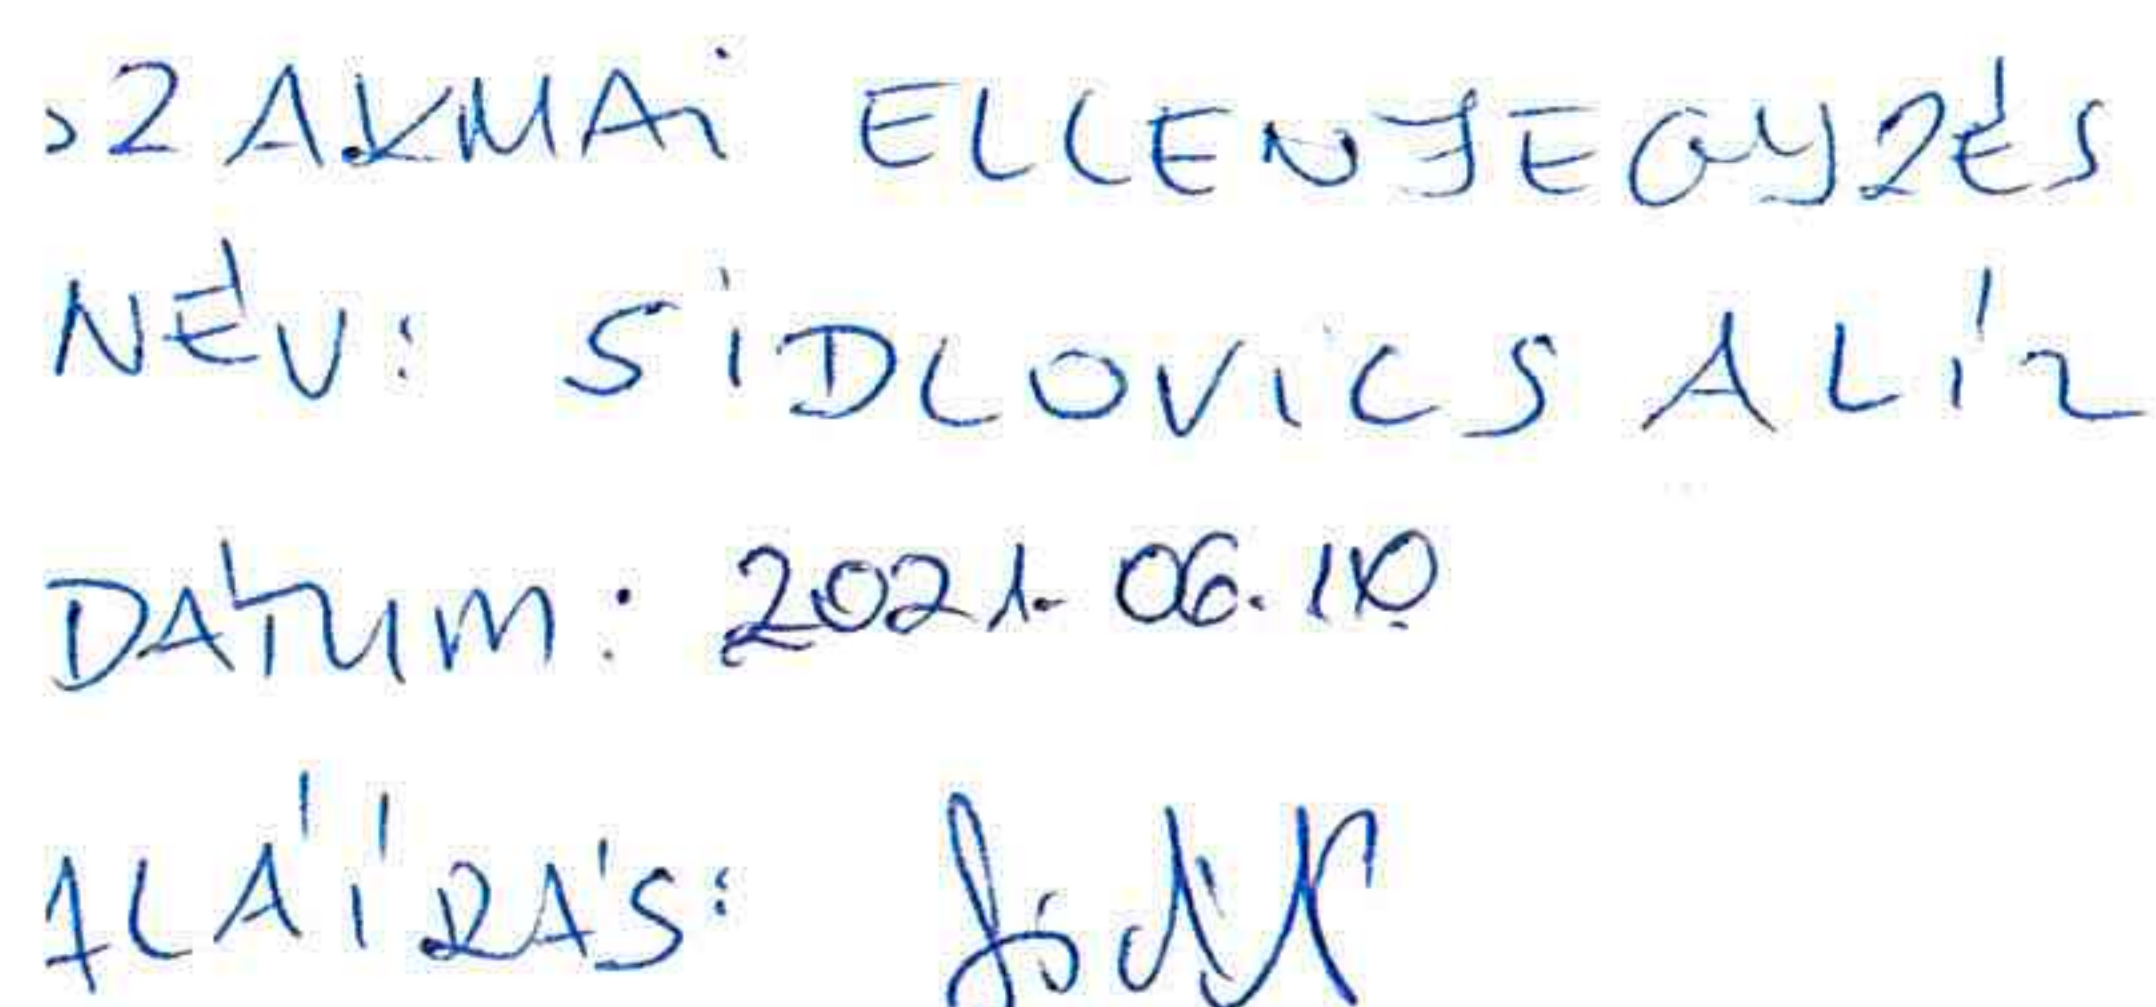 SZAKMAi ELLENJEGYZÉS
NÉV: SIDLOVICS ALÍZ
DÁTUM: 2021.06.10
ALÁÍRÁS: